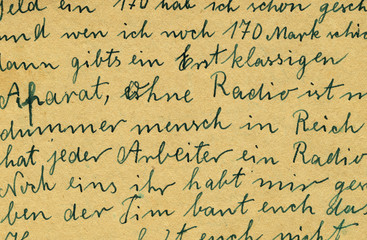 Geld ein 170 hab ich schon gesch
und wen ich noch 170 Mark schic
dann gibts ein Erstklassigen
Aparat, Ohne Radio ist n
dummer mensch in Reich
hat jeder Arbeiter ein Radio
Noch eins ihr habt mir ges
ben der Tim baut euch das
euch nicht